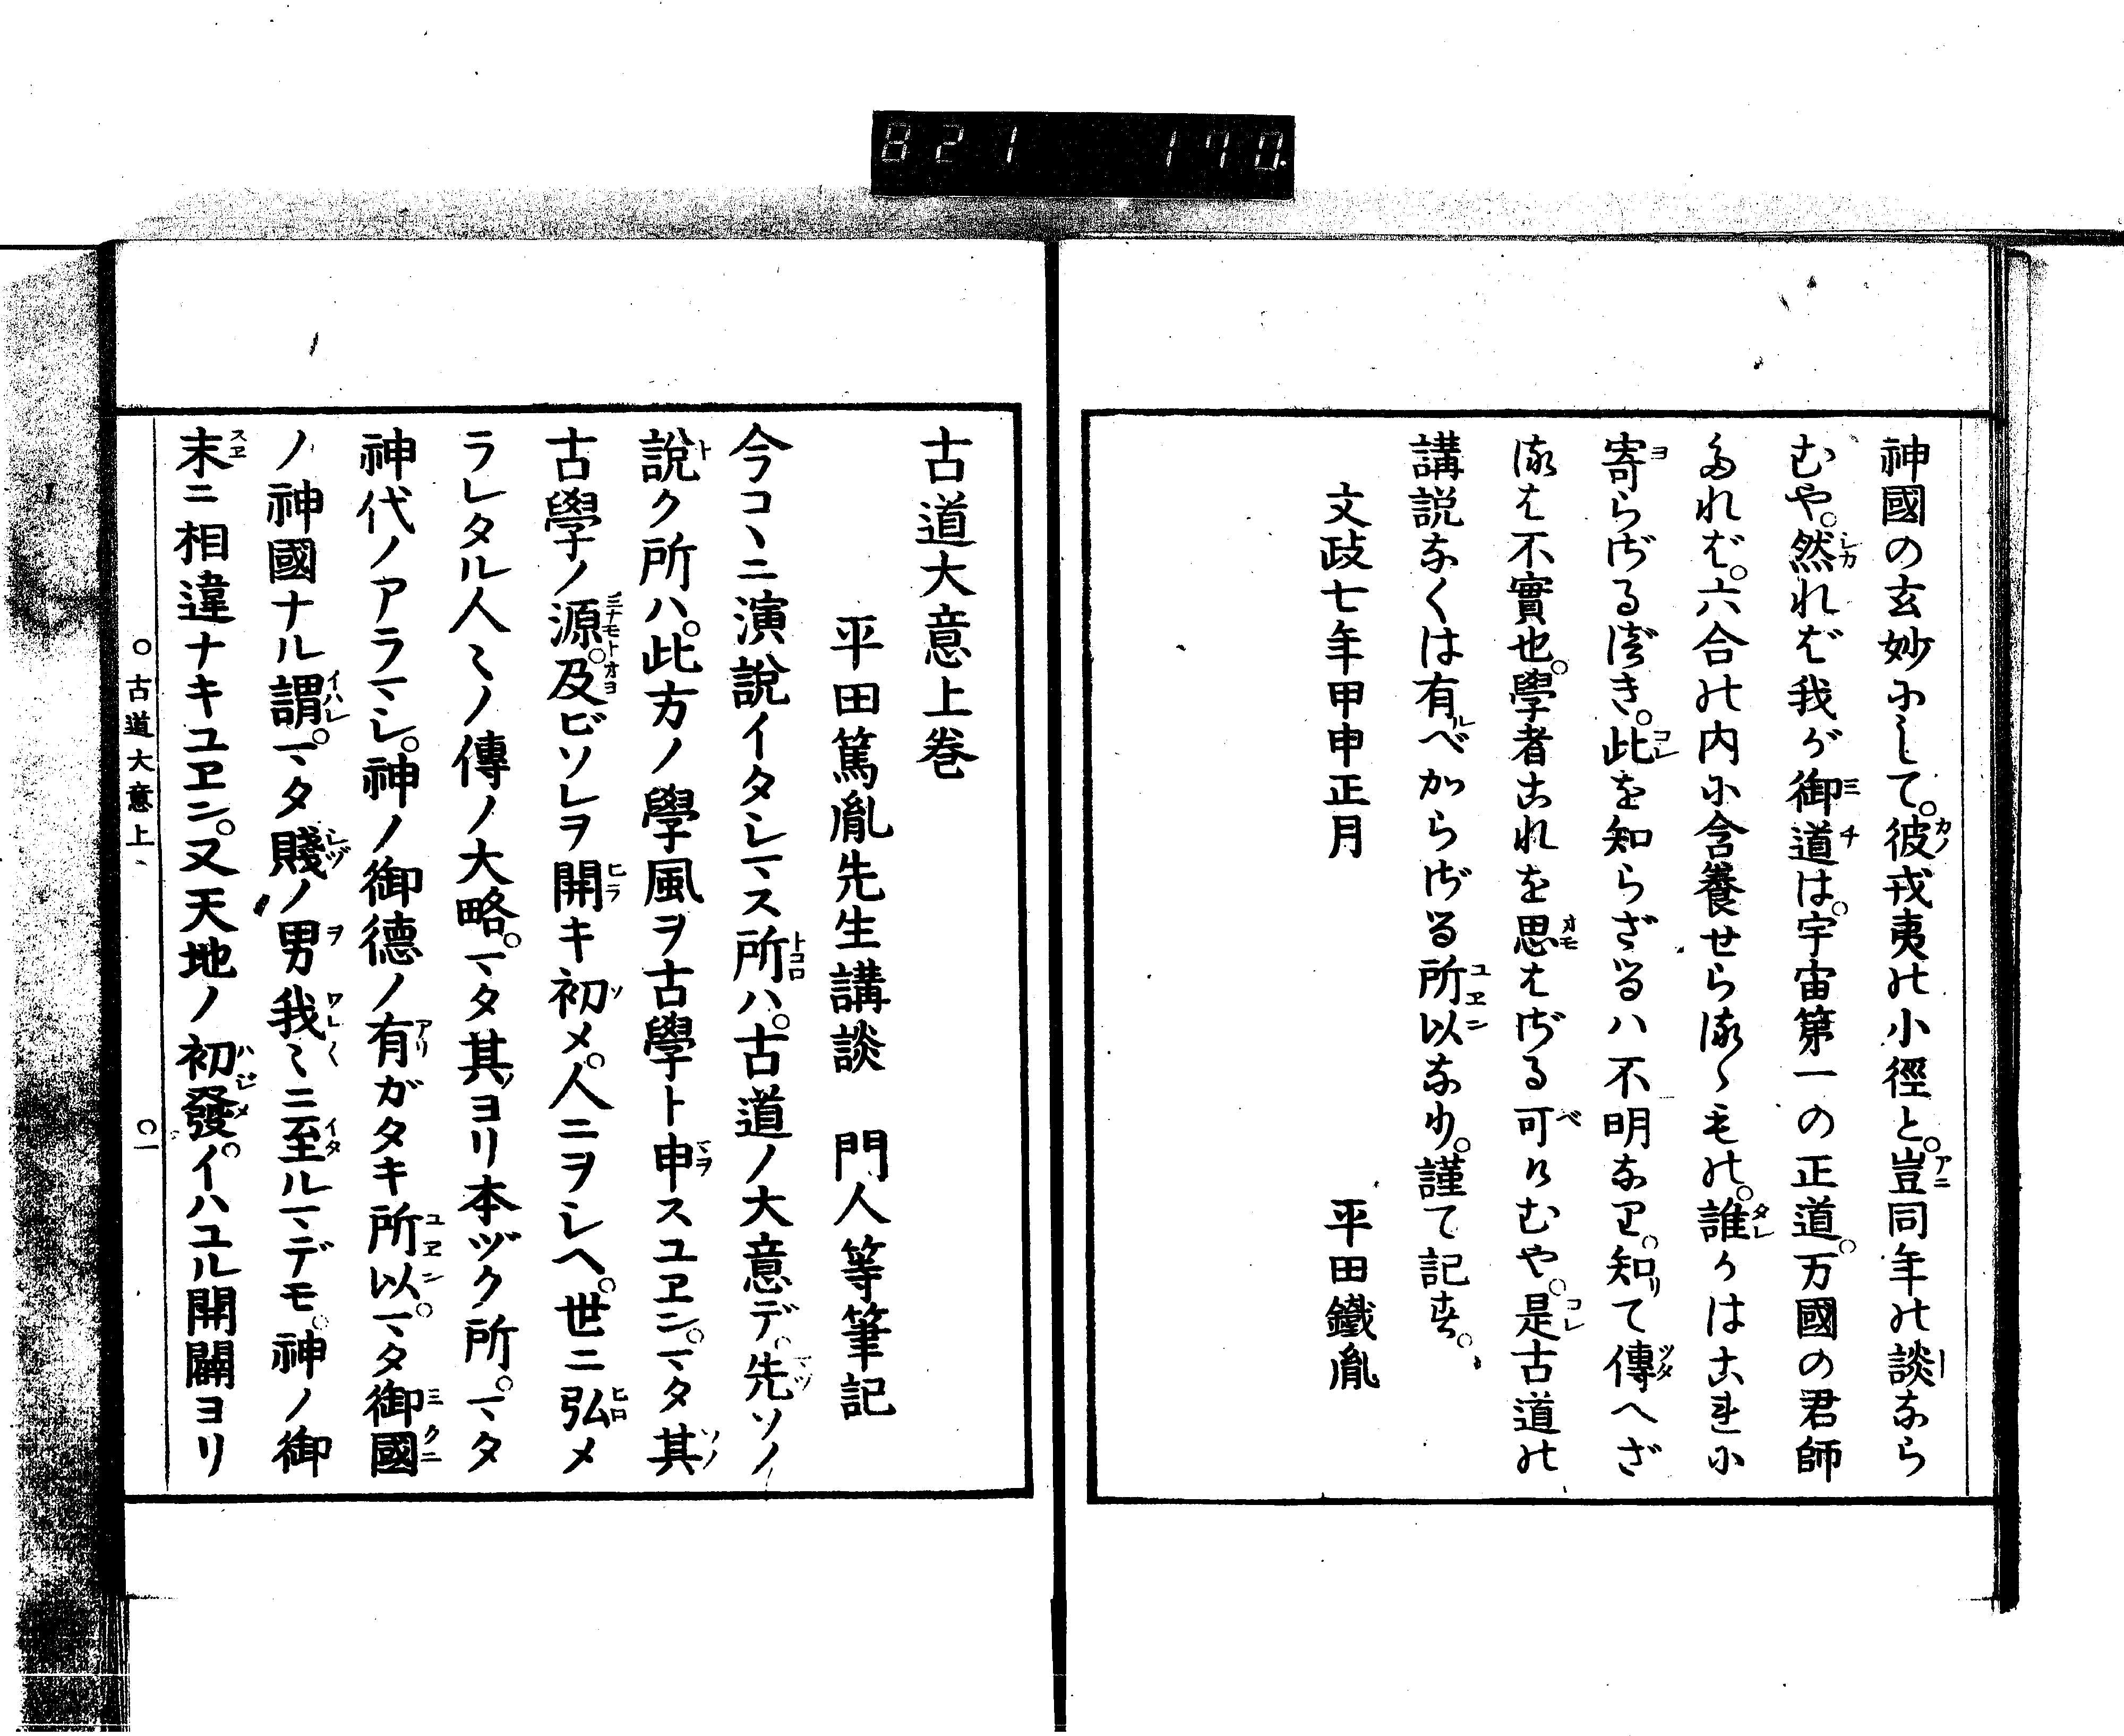 821 170
神國の玄妙にして。彼戎夷の小徑と。豈同年の談なら
むや。然れば我が御道は。宇宙第一の正道。万國の君師
なれば。六合の内に含養せらるゝもの。誰かはこれに
寄らざるべき。此を知らざるハ不明なり。知りて傳へざ
るは不實也。學者これを思はざる可けむや。是古道の
講説なくは有べからざる所以なり。謹て記す。
文政七年甲申正月
平田鐵胤
古道大意上巻
平田篤胤先生講談 門人等筆記
今コヽニ演說イタシマス所ハ。古道ノ大意デ。先ソノ
說ク所ハ。此方ノ學風ヲ古學ト申スユヱン。マタ其
古學ノ源。及ビソレヲ開キ初メ。人ニヲシヘ。世ニ弘メ
ラレタル人〻ノ傳ノ大略。マタ其ヨリ本ヅク所。マタ
神代ノアラマシ。神ノ御德ノ有ガタキ所以。マタ御國
ノ神國ナル謂。マタ賤ノ男我〻ニ至ルマデモ。神ノ御
末ニ相違ナキユヱン。又天地ノ初發。イハユル開闢ヨリ
○古道大意上
○一